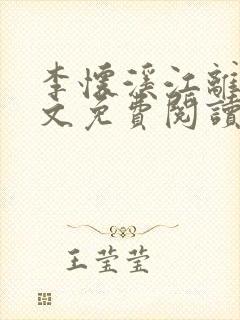 李懷溪江離
文免費閱讀
王莹莹